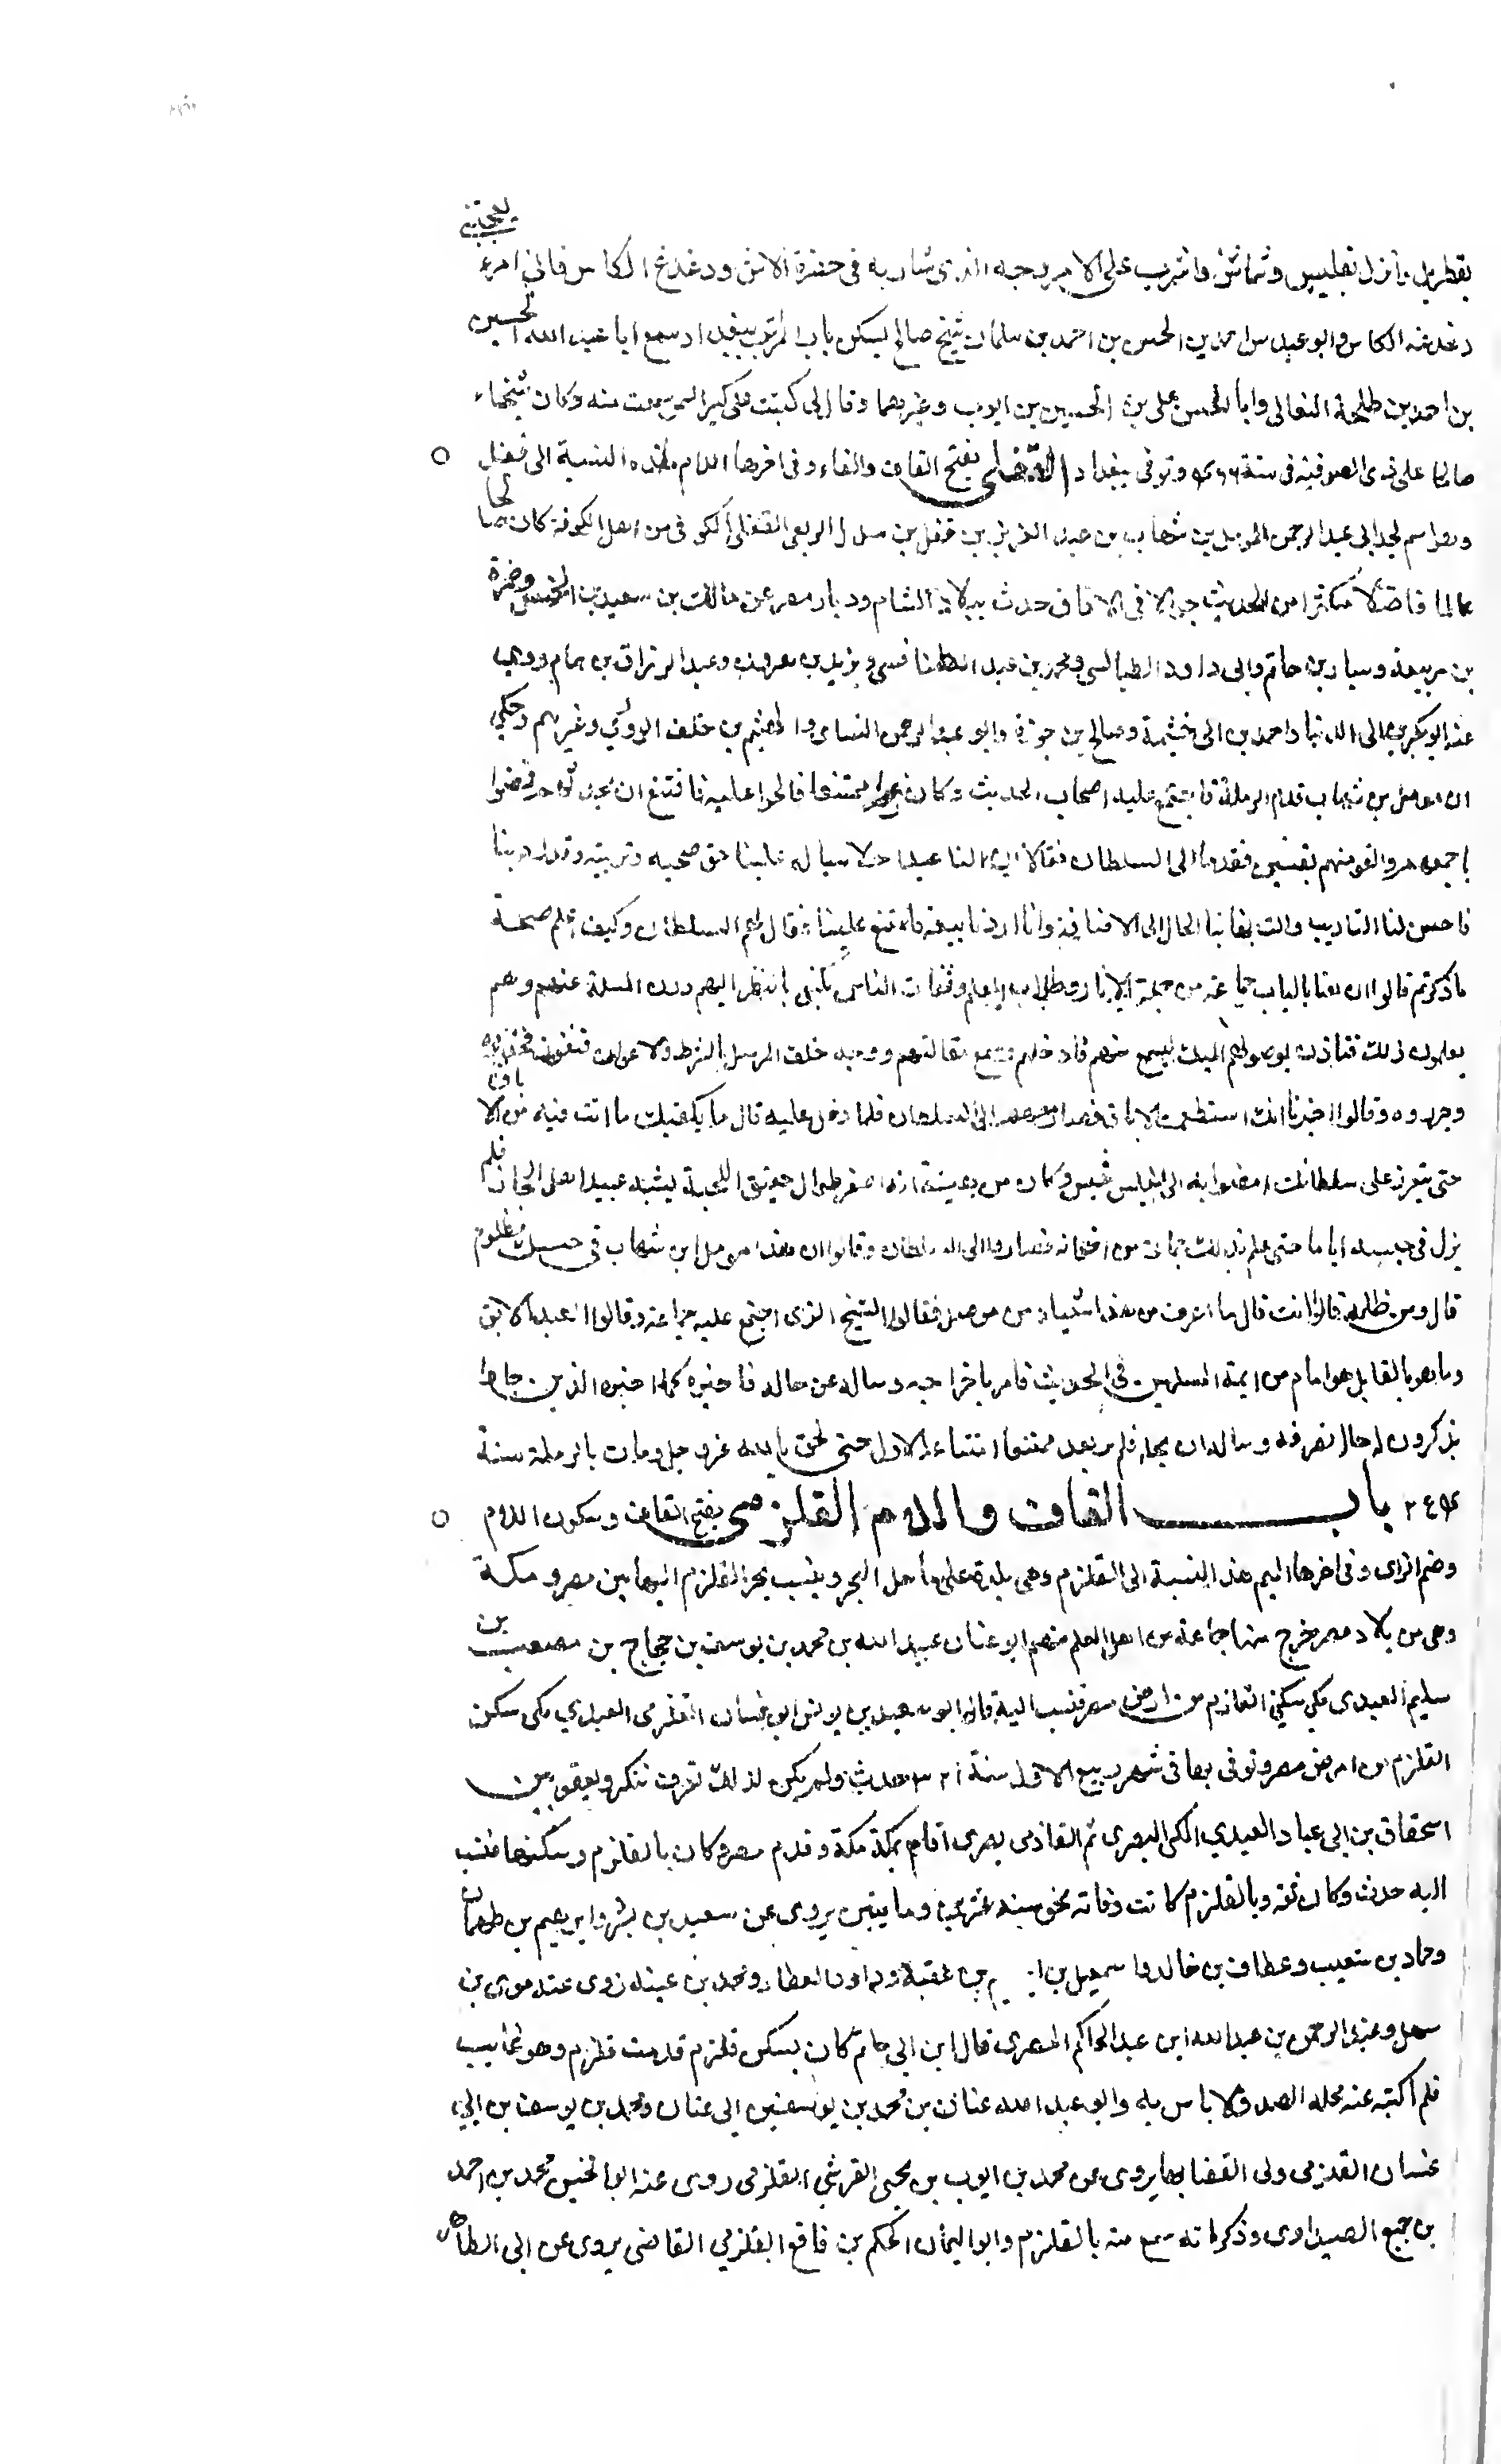 يعجبني
بقطربل وانزل بقليس وتماثن واشرب على الامر وجه الذى شاربه فى حضرة الانس ودغدغ الكاس فانى امرء
دغدغه الكاس وابو عبد الله بن الحسن بن احمد بن سلمان شيخ صالح يسكن باب المراتب ببغداد سمع ابا عبد الله الحسين
بن احمد بن طلحة النعالى وابا الحسن على بن الحسين بن ايوب وغيرهما وقال لى كتبت على كبر السن سمعت منه وكان شيخا
صالحا على زى الصوفية فى سنة وتوفى ببغداد القفلى بفتح القاف والفاء وفى اخرها اللام هذه النسبة الى قفل
وهو اسم لجد ابى عبد الرحمن المومل بن شهاب بن عبد العزيز بن قفل بن سدل الربعى القفلى الكوفى من اهل الكوفة كان
عالما فاضلا مكثرا من الحديث جوالا فى الافاق حدث ببلاد الشام وديار مصر عن مالك بن سعيد بن الخمس وضمرة
بن ربيعة وسيار بن حاتم وابى داود الطيالسى ومحمد بن عبد الطنافسى ويزيد بن هرون وعبد الرزاق بن همام روى
عنه ابو بكر بن ابى الدنيا واحمد بن ابى خيثمة وصالح بن جزرة وابو عبد الرحمن النساى والهيثم بن خلف الدورى وغيرهم وحكى
ان مومل بن شهاب قدم الرملة فاجتمع عليه اصحاب الحديث وكان ممتنعا فالحوا عليه فامتنع ان يحدثهم فمضوا
باجمعهم والفوا منهم نفسين فقدما الى السلطان فقالا ان لنا عبدا علينا حق صحبه وتربيته وقد ادبنا
فاحسن لنا التاديب والت بنا الحال الى الاضاقة وانا اردنا بيعه فامتنع علينا فقال لهم السلطان وكيف اعلم صحة
ما ذكرتم قالوا ان معنا بالباب جماعة من حملة الاثار وطلاب العلم وثقات الناس تكتفى بالنظر اليهم دون المسلة عنهم وهم
يعلمون ذلك فتاذن بوصولهم اليك ليسمع منهم فادخلهم وسمع مقالتهم ووجه خلف المومل بالشرط والاعوان فتعزز
وجروه وقالوا اخبرنا انك استطعمت الاباق فصار الى السلطان فلما دخل عليه قال ما يكفيك ما انت فيه من الاباق
حتى تتعزز على سلطانك امضوا به الى الحبس فحبس وكان من هيئته انه اصفر طوال خفيف اللحية يشبه عبيد اهل الحجاز فلم
يزل فى حبسه اياما حتى علم بذلك جماعة من اخوانه فصاروا الى السلطان وقالوا ان هذا مومل ابن شهاب فى حبسك مظلوم
قال ومن ظلمه قالوا انت قال ما اعرف من هذا شيا من مومل فقالوا الشيخ الذى اجتمع عليه جماعة وقالوا العبد الابق
وما هو بالقابل هو امام من ايمة المسلمين فى الحديث فامر باخراجه وساله عن حاله فاخبره كما اخبره الذين جاءوا
يذكرون له حاله فصرفه وساله ان يحله فلم يربعد ممتنعا امتناعه الاول حتى لحق بالله عز وجل ومات بالرملة سنة
٢٤٥٤ باب القاف واللام القلزمى بفتح القاف وسكون اللام
وضم الزاى وفى اخرها الميم هذه النسبة الى القلزم وهى بلدة على ساحل البحر وينسب بحر القلزم اليها بين مصر ومكة
وهى من بلاد مصر خرج منها جماعة من اهل العلم منهم ابو غسان عبيد الله بن محمد بن يوسف بن حجاج بن مصعب بن
سليم العبدى مكى سكن القلزم من ارض مصر فنسب اليه قال ابو سعيد بن يونس ابو غسان القلزمى العبدى مكى سكن
القلزم من ارض مصر وتوفى بها فى شهر ربيع الاول سنة ٣٢١ حدث ولم يكن لذلك تعرف وتنكر ويعقوب بن
اسحقاق بن ابى عباد العبدى المكى البصرى ثم القلزمى بصرى اقام بمكة مكة وقدم مصر وكان بالقلزم وسكنها فنسب
اليه حدث وكان ثقة وبالقلزم كانت وفاته نحو سنة عشرين وماتين يروى عن سعيد بن بشر وابرهيم بن طهمان
وحماد بن شعيب وعطاف بن خالد واسمعيل بن ابرهيم بن عقبة وداود العطار ومحمد بن عيينه روى عنه موسى بن
سهل وعبد الرحمن بن عبد الله ابن عبد الحاكم المصرى قال ابن ابى حاتم كان يسكن قلزم قدمت قلزم وهو غايب
فلم اكتب عنه محله الصدق لا باس به وابو عبد الله غسان بن محمد بن يوسف بن ابى غسان ومحمد بن يوسف بن ابى
غسان القلزمى ولى القضا بها يروى عن محمد بن ايوب بن يحيى القرشى القلزمى روى عنه ابو الحسين محمد بن احمد
بن جميع الصيداوى وذكر انه سمع منه بالقلزم وابو اليمان الحكم بن نافع القلزمى القاضى يروى عن ابى الطاهر